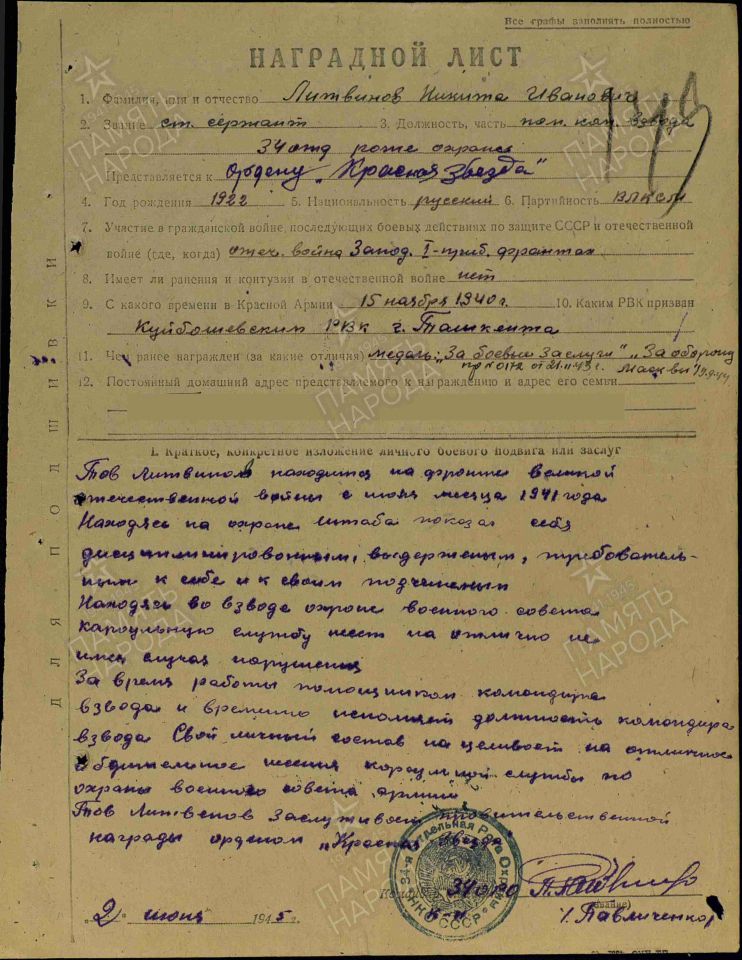 Все графы заполнять полностью
НАГРАДНОЙ ЛИСТ
1. Фамилия, имя и отчество Литвинов Никита Иванович
2. Звание ст. сержант 3. Должность, часть пом. ком. взвода
34 отд роже охраны
Представляется к Ордену „Красная Звезда"
4. Год рождения 1922 5. Национальность русский 6. Партийность ВЛКСМ
7. Участие в гражданской войне, последующих боевых действиях по защите СССР и отечественной
войне (где, когда) отеч. война Запад. I-приб. фронтах
8. Имеет ли ранения и контузии в отечественной войне нет
9. С какого времени в Красной Армии 15 ноября 1940 г. 10. Каким РВК призван
Куйбошевским РВК г. Ташкента
11. Чем ранее награжден (за какие отличия) медаль: „За боевые заслуги" „За оборону
пр № 0172 от 21.11.43 г. Масквы"
12. Постоянный домашний адрес представляемого к награждению и адрес его семьи
I. Краткое, конкретное изложение личного боевого подвига или заслуг
Тов Литвинов находится на фронте великой
отечественной войны с июня месяца 1941 года
Находясь на охране штаба показал себя
дисциплинированным, выдержаным, требователь-
ным к себе и к своим подчененым
Находясь во взводе охране военного совета
караульную службу несет на отлично не
имея случая нарушения
За время работы помощником командира
взвода и временно исполняет должность командира
взвода Свой личный состав нацеливает на отличное
и бдительное несения караульной службы по
охраны военного совета армии
Тов Литвенов заслуживает правительственной
награды орденом „Красная Звезда
34 оро
Павличенко
2 июня 1945 г.
34-я Отдельная Рота Охраны
НКО СССР
ДЛЯ ПОДШИВКИ
ПАМЯТЬ НАРОДА